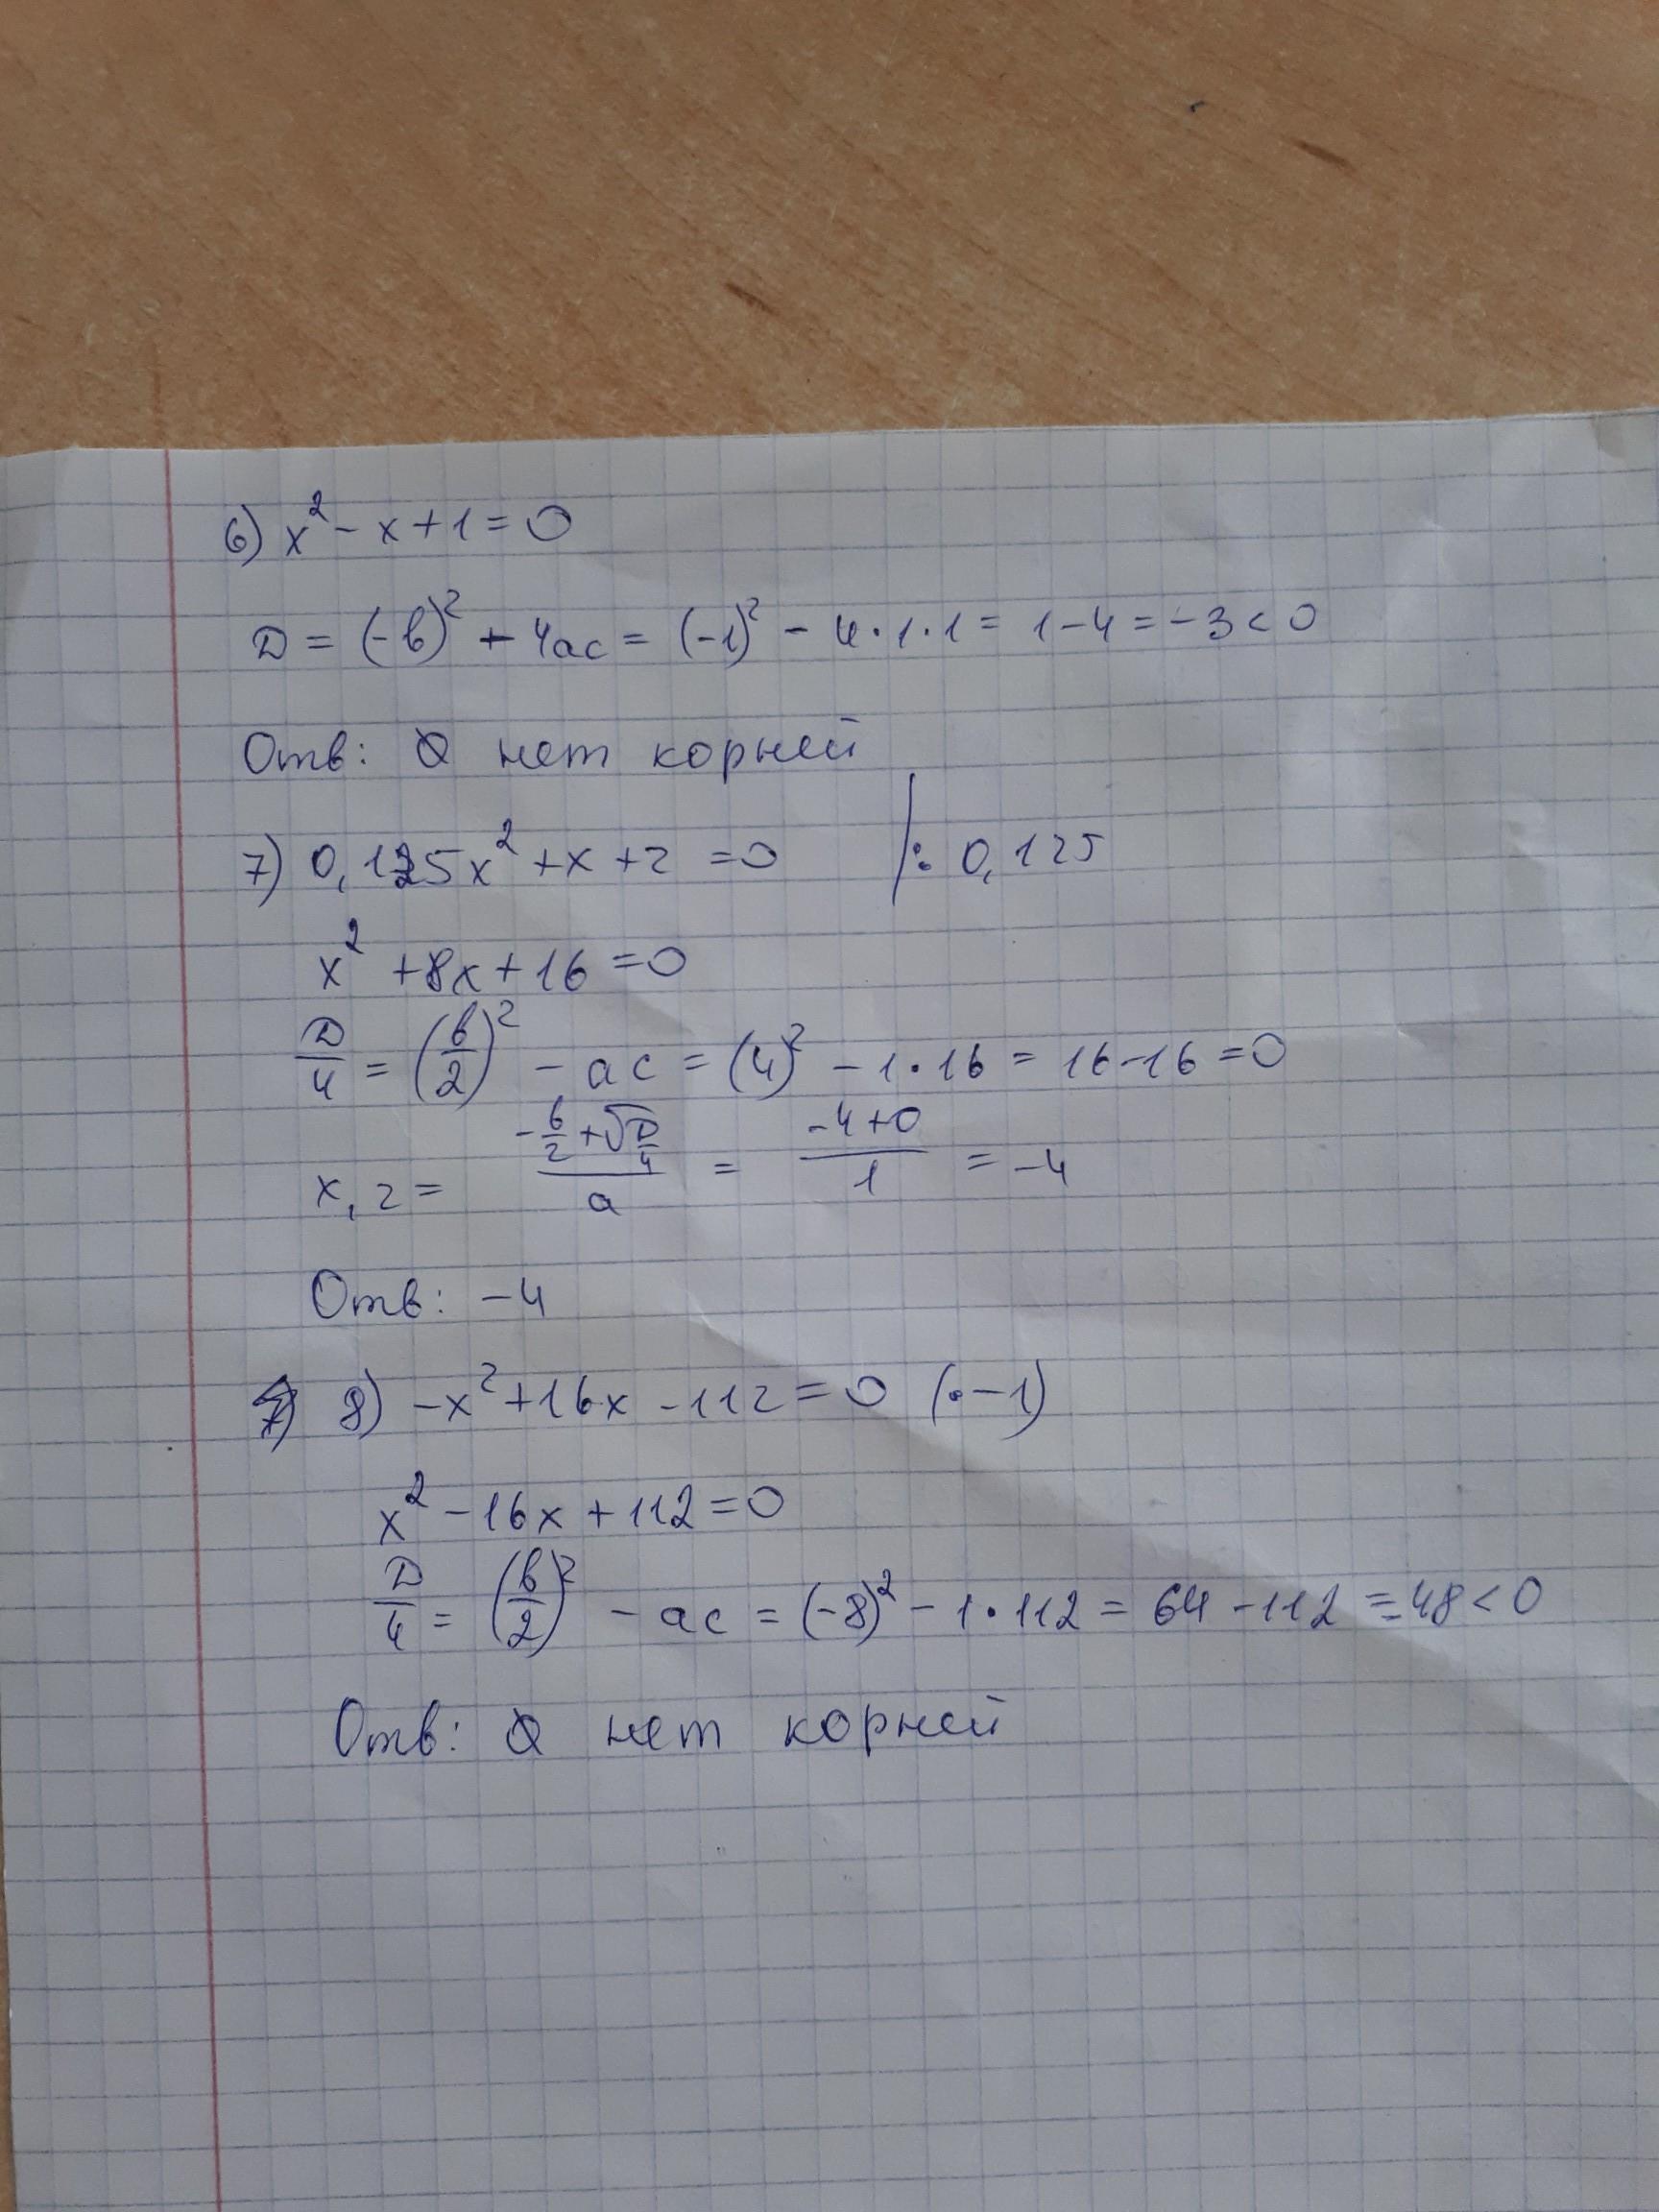 6) x² - x + 1 = 0
D = (-b)² - 4ac = (-1)² - 4·1·1 = 1 - 4 = -3 < 0
Отв: ∅ нет корней
7) 0,125x² + x + 2 = 0 |: 0,125
x² + 8x + 16 = 0
D/4 = (b/2)² - ac = (4)² - 1·16 = 16 - 16 = 0
x1,2 = (-b/2 + √(D/4))/a = (-4+0)/1 = -4
Отв: -4
8) -x² + 16x - 112 = 0 (· -1)
x² - 16x + 112 = 0
D/4 = (b/2)² - ac = (-8)² - 1·112 = 64 - 112 = -48 < 0
Отв: ∅ нет корней